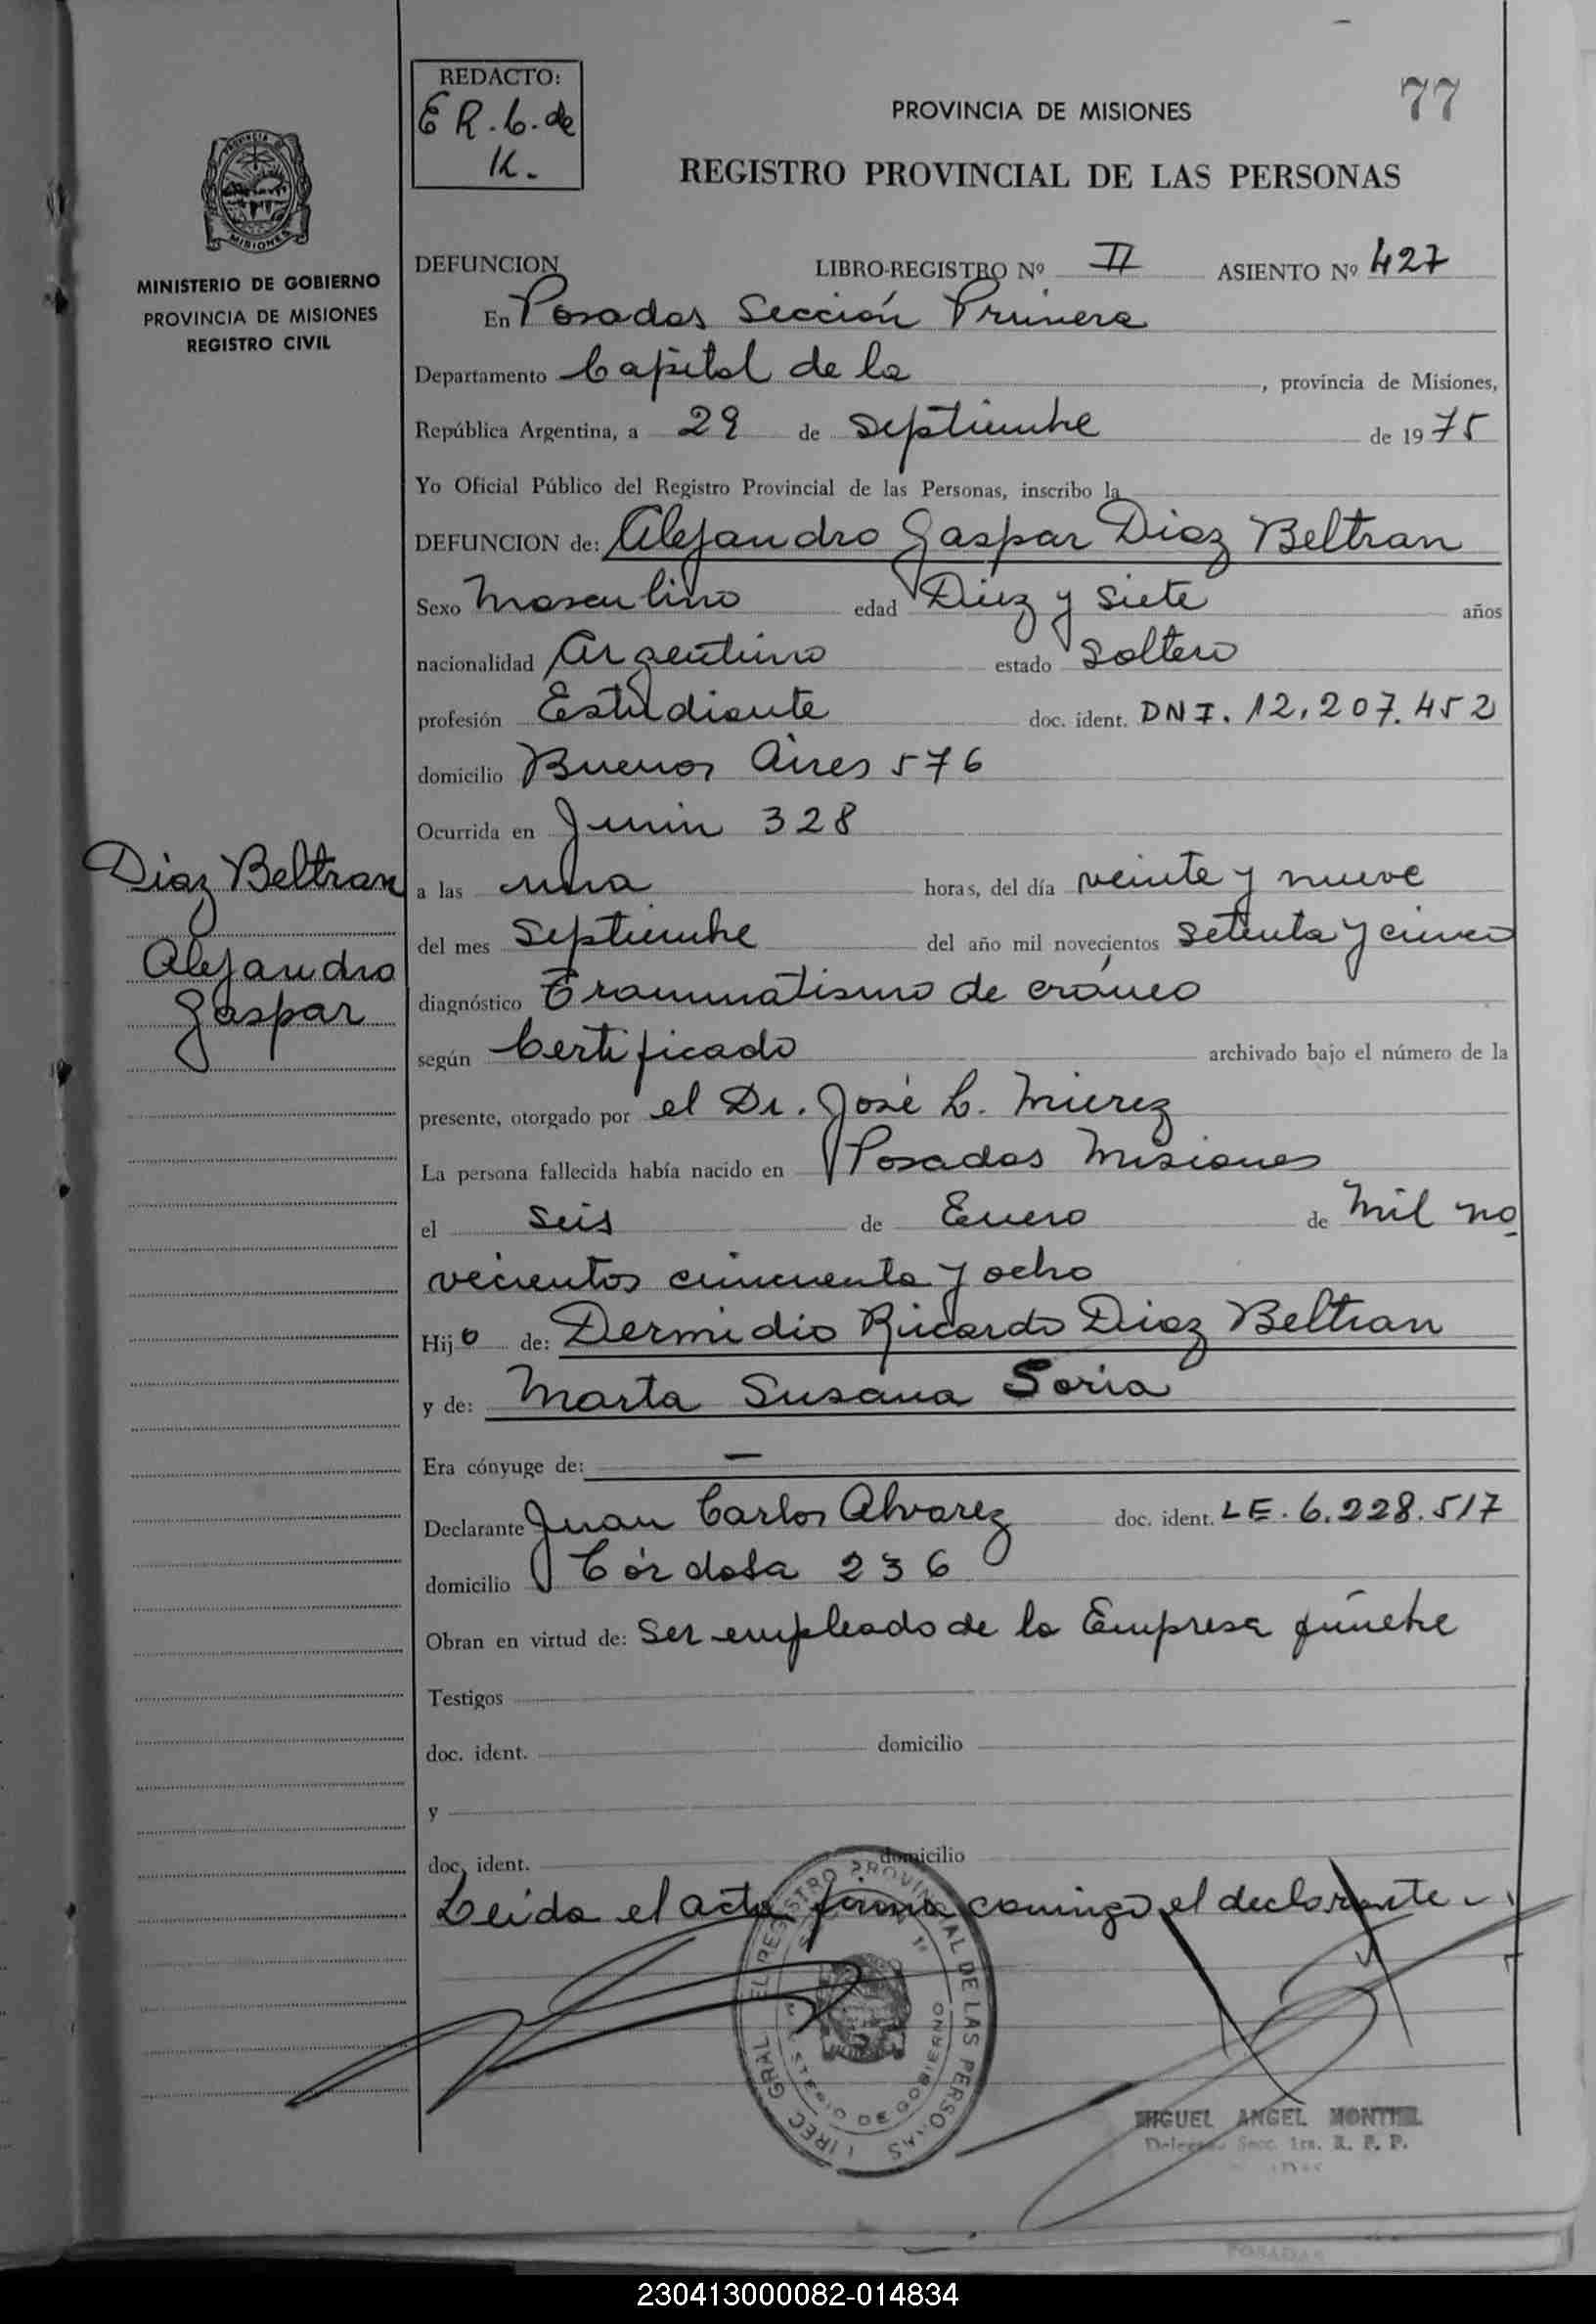 REDACTO:
E R. C. de
K.
77
PROVINCIA DE MISIONES
REGISTRO PROVINCIAL DE LAS PERSONAS
MINISTERIO DE GOBIERNO
PROVINCIA DE MISIONES
REGISTRO CIVIL
DEFUNCION LIBRO-REGISTRO Nº II ASIENTO Nº 427
En Posadas Sección Primera
Departamento Capital de la, provincia de Misiones,
República Argentina, a 29 de Septiembre de 1975
Yo Oficial Público del Registro Provincial de las Personas, inscribo la
DEFUNCION de: Alejandro Gaspar Diaz Beltran
Sexo Masculino edad Diez y Siete años
nacionalidad Argentino estado Soltero
profesión Estudiante doc. ident. DNI. 12.207.452
domicilio Buenos Aires 576
Ocurrida en Junin 328
Diaz Beltran
Alejandro
Gaspar
a las una horas, del día veinte y nueve
del mes Septiembre del año mil novecientos Setenta y cinco
diagnóstico Traumatismo de cráneo
según Certificado archivado bajo el número de la
presente, otorgado por el Dr. José L. Mierez
La persona fallecida había nacido en Posadas Misiones
el Seis de Enero de Mil no
vecientos cincuenta y ocho
Hijo de: Dermidio Ricardo Diaz Beltran
y de: Marta Susana Soria
Era cónyuge de: —
Declarante Juan Carlos Alvarez doc. ident. LE. 6.228.517
domicilio Córdoba 236
Obran en virtud de: Ser empleado de la Empresa fúnebre
Testigos
doc. ident. domicilio
y
doc. ident. domicilio
Leida el acta firma conmigo el declarante
MIGUEL ANGEL MONTIEL
Secc. 1ra. R. P. P.
POSADAS
230413000082-014834